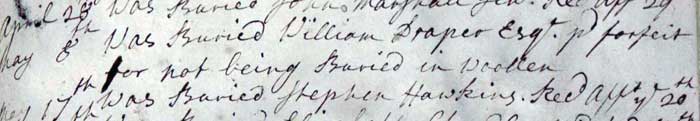 April 28th Was Buried John Marshall Sen. Rec'd Aff 29
May 8th Was Buried William Draper Esqr. pd forfeit
for not being Buried in Woollen
May 17th Was Buried Stephen Hawkins. Rec'd Afft ye 20th